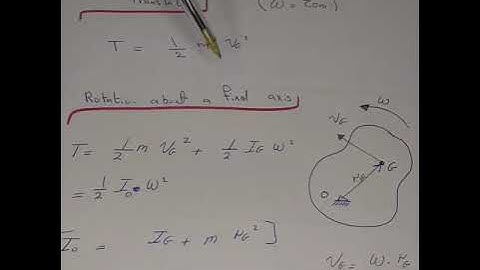 (ω = zero)
T = 1/2 m V_G²
Rotation about a final axis
T = 1/2 m V_G² + 1/2 I_G ω²
= 1/2 I_O ω²
I_O = I_G + m r_G² ]
ω
V_G
G
r_G
O
V_G = ω . r_G